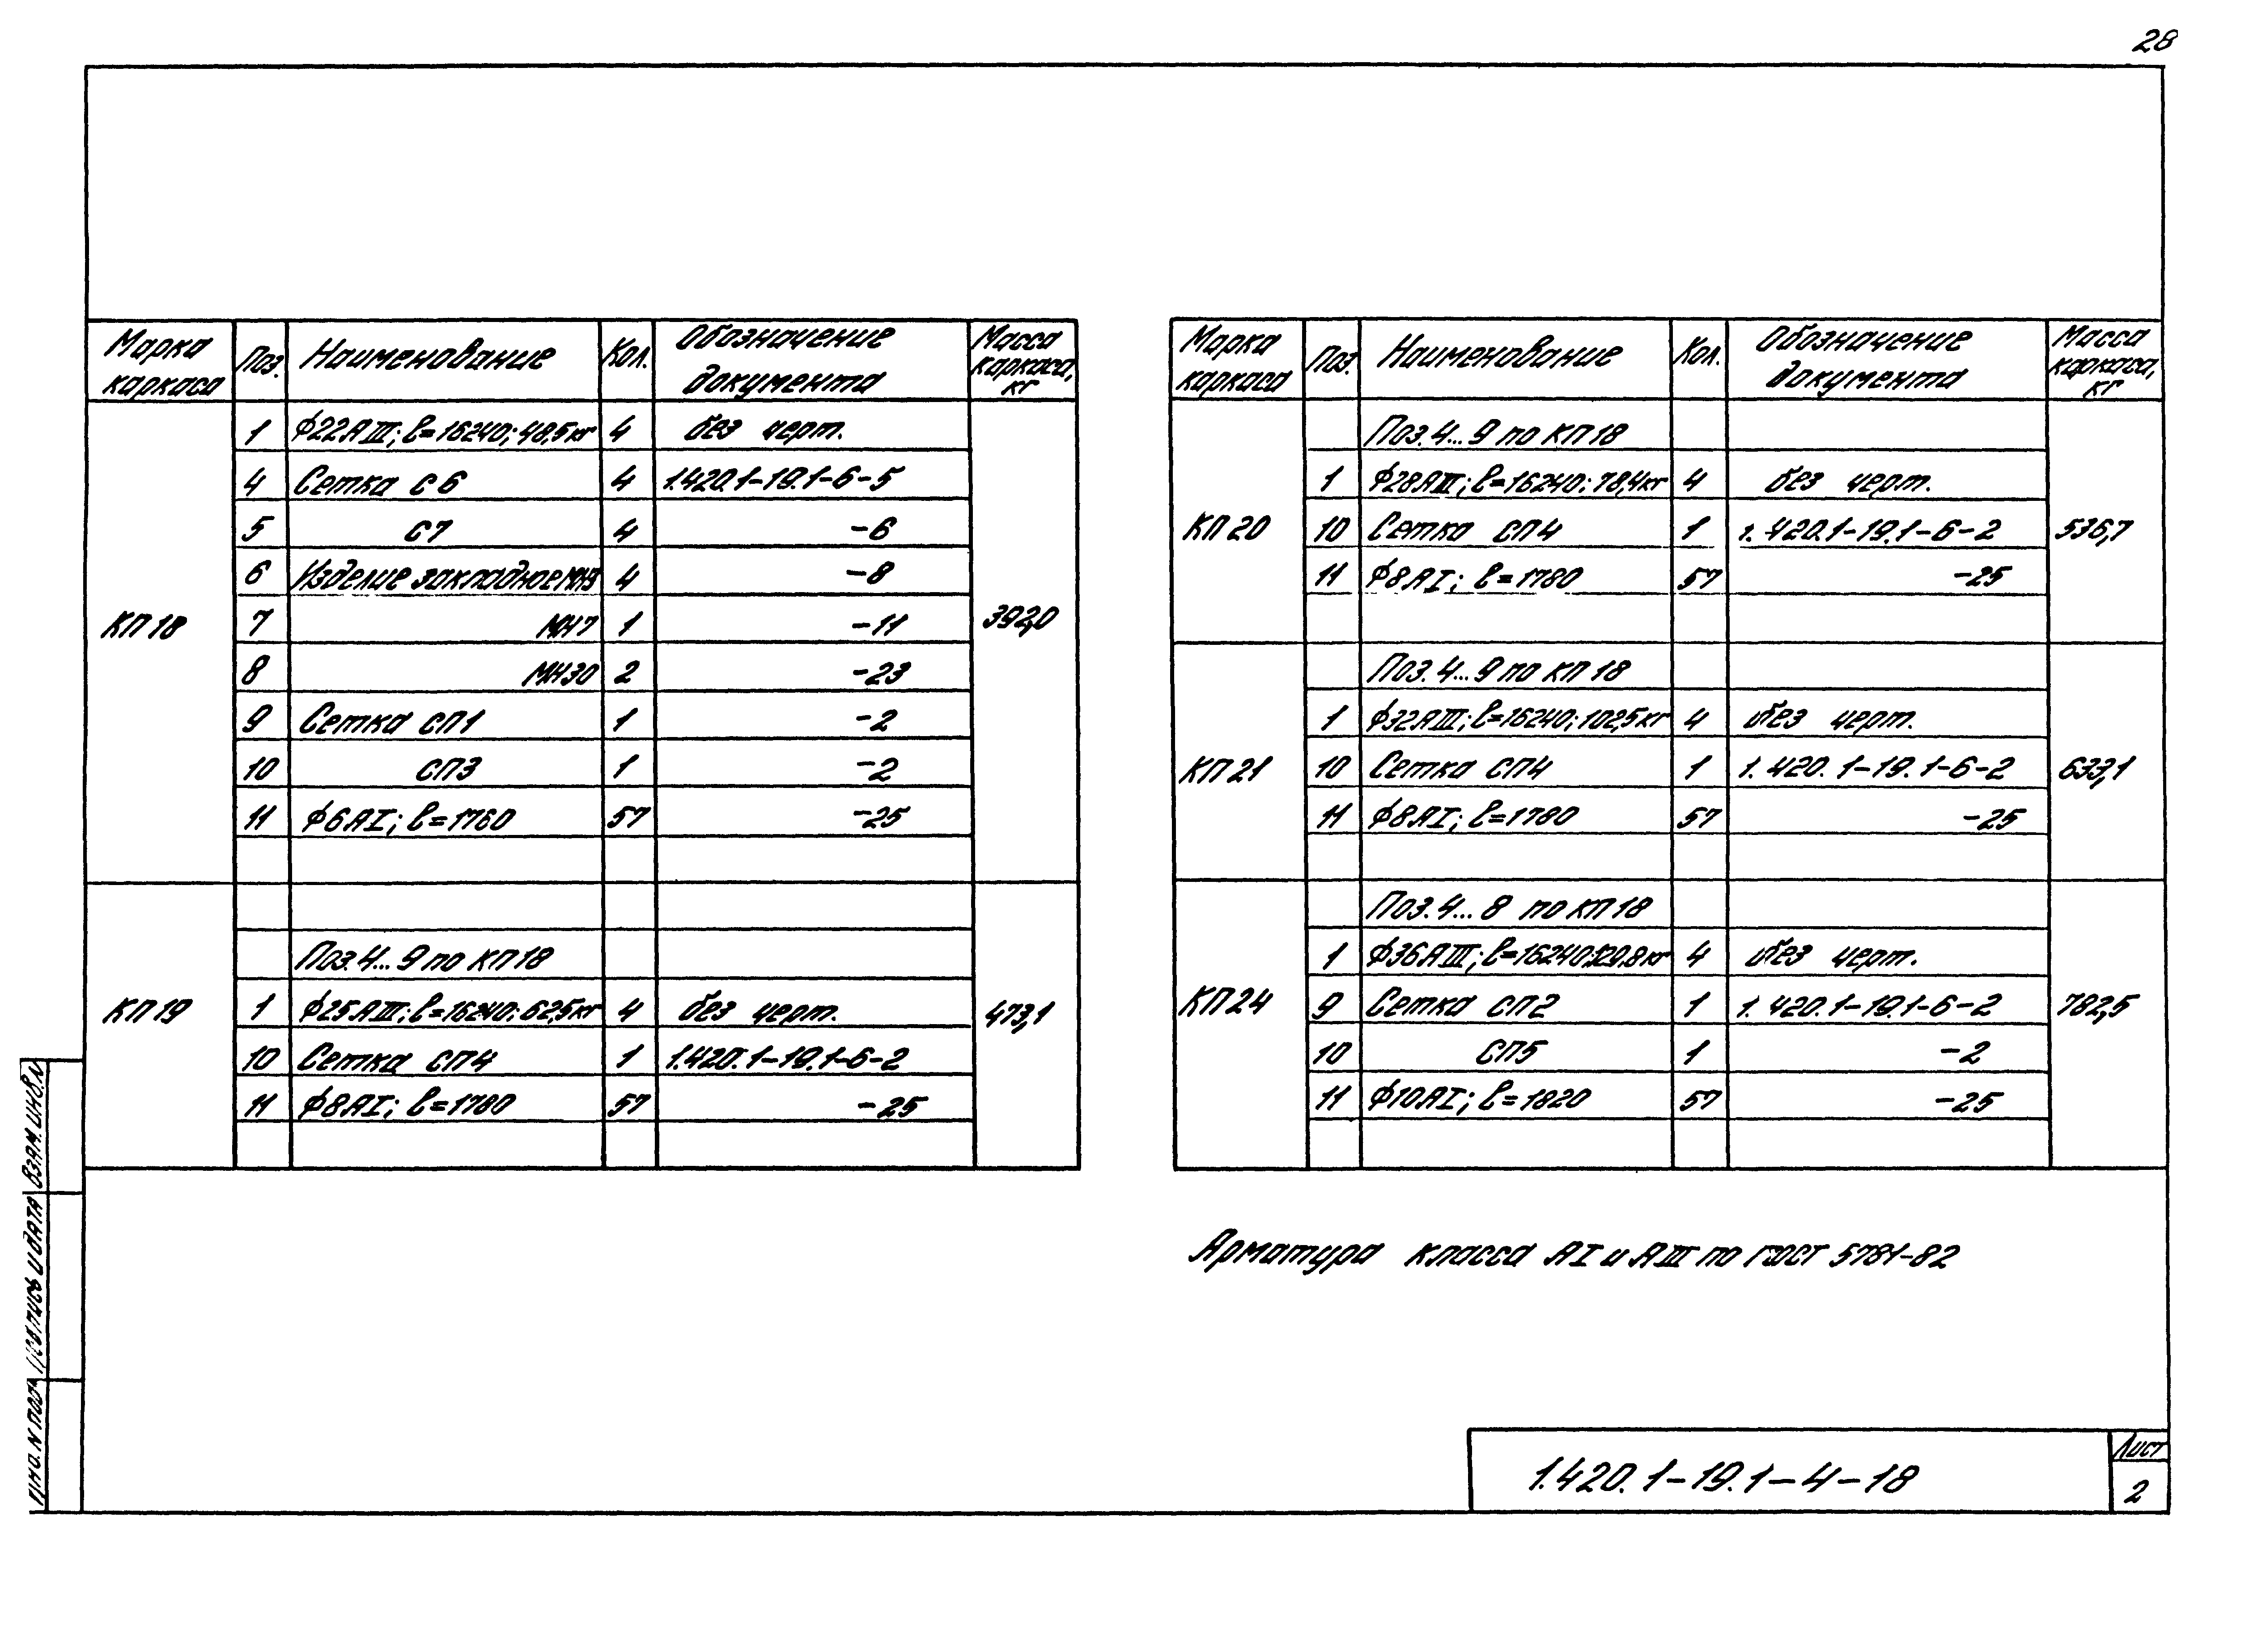 28
Марка каркаса Поз. Наименование Кол. Обозначение документа Масса каркаса, кг
КП18 392,0
1 ф22АIII; l=16240; 48,5кг 4 без черт.
4 Сетка С6 4 1.420.1-19.1-6-5
5 С7 4 -6
6 Изделие закладное 4 -8
7 МН7 1 -11
8 МН30 2 -23
9 Сетка СП1 1 -2
10 СП3 1 -2
11 ф6АI; l=1760 57 -25
КП19 473,1
Поз.4...9 по КП18
1 ф25АIII; l=16240; 62,5кг 4 без черт.
10 Сетка СП4 1 1.420.1-19.1-6-2
11 ф8АI; l=1780 57 -25
Марка каркаса Поз. Наименование Кол. Обозначение документа Масса каркаса, кг
КП20 536,7
Поз.4...9 по КП18
1 ф28АIII; l=16240; 78,4кг 4 без черт.
10 Сетка СП4 1 1.420.1-19.1-6-2
11 ф8АI; l=1780 57 -25
КП21 633,1
Поз.4...9 по КП18
1 ф32АIII; l=16240; 102,5кг 4 без черт.
10 Сетка СП4 1 1.420.1-19.1-6-2
11 ф8АI; l=1780 57 -25
КП24 782,5
Поз.4...8 по КП18
1 ф36АIII; l=16240; 129,8кг 4 без черт.
9 Сетка СП2 1 1.420.1-19.1-6-2
10 СП5 1 -2
11 ф10АI; l=1820 57 -25
Арматура класса АI и АIII по ГОСТ 5781-82
ВЗАМ. ИНВ. N
ПОДПИСЬ И ДАТА
ИНВ. N ПОДЛ
1.420.1-19.1-4-18
Лист
2